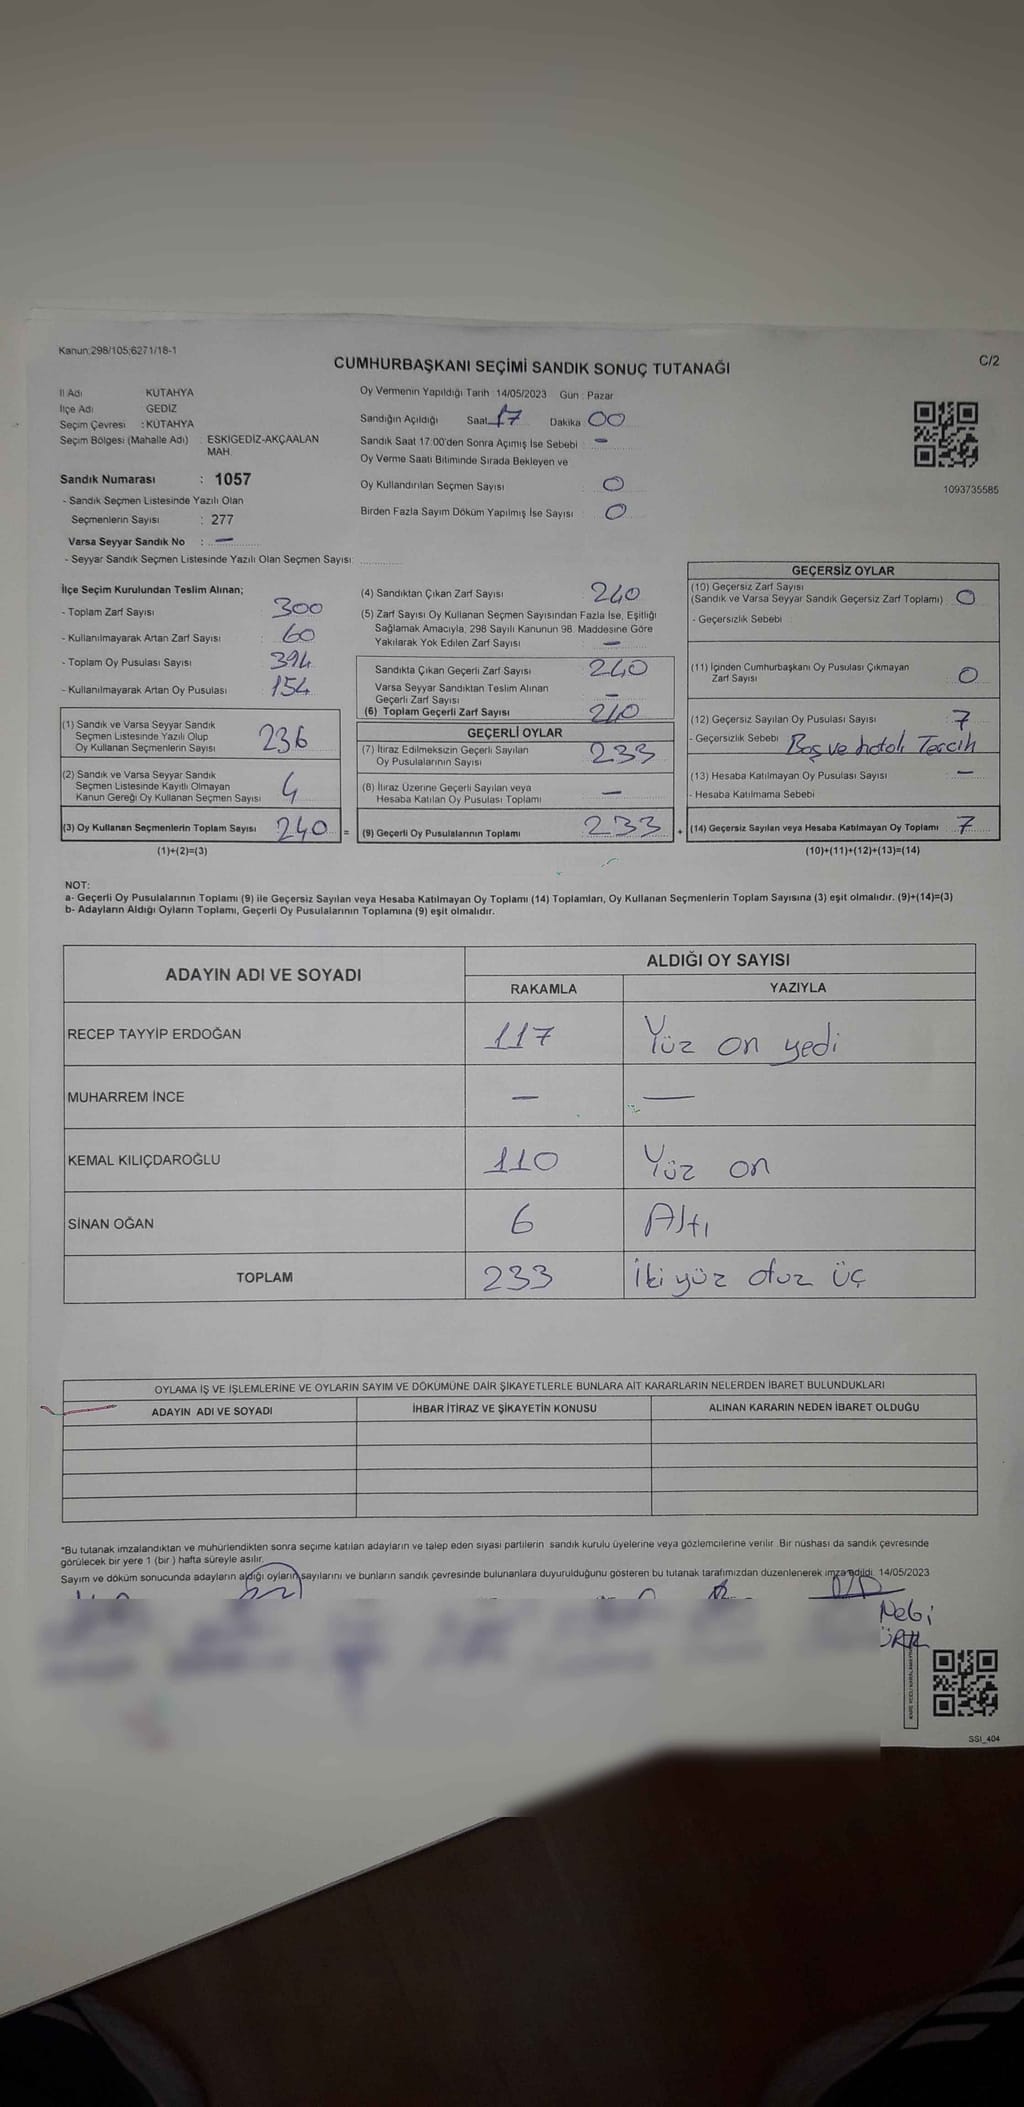 Kanun;298/105;6271/18-1
CUMHURBAŞKANI SEÇİMİ SANDIK SONUÇ TUTANAĞI
C/2
İl Adı KUTAHYA
İlçe Adı GEDİZ
Seçim Çevresi : KUTAHYA
Seçim Bölgesi (Mahalle Adı) : ESKİGEDİZ-AKÇAALAN
MAH.
Sandık Numarası : 1057
- Sandık Seçmen Listesinde Yazılı Olan
Seçmenlerin Sayısı : 277
Varsa Seyyar Sandık No : —
- Seyyar Sandık Seçmen Listesinde Yazılı Olan Seçmen Sayısı
Oy Vermenin Yapıldığı Tarih 14/05/2023 Gün : Pazar
Sandığın Açıldığı Saat 17 Dakika 00
Sandık Saat 17:00'den Sonra Açımış İse Sebebi : —
Oy Verme Saati Bitiminde Sırada Bekleyen ve
Oy Kullandırılan Seçmen Sayısı : 0
Birden Fazla Sayım Döküm Yapılmış İse Sayısı : 0
1093735585
İlçe Seçim Kurulundan Teslim Alınan;
- Toplam Zarf Sayısı : 300
- Kullanılmayarak Artan Zarf Sayısı : 60
- Toplam Oy Pusulası Sayısı : 394
- Kullanılmayarak Artan Oy Pusulası : 154
(1) Sandık ve Varsa Seyyar Sandık
Seçmen Listesinde Yazılı Olup
Oy Kullanan Seçmenlerin Sayısı 236
(2) Sandık ve Varsa Seyyar Sandık
Seçmen Listesinde Kayıtlı Olmayan
Kanun Gereği Oy Kullanan Seçmen Sayısı 4
(3) Oy Kullanan Seçmenlerin Toplam Sayısı 240 =
(1)+(2)=(3)
(4) Sandıktan Çıkan Zarf Sayısı : 240
(5) Zarf Sayısı Oy Kullanan Seçmen Sayısından Fazla İse, Eşitliği
Sağlamak Amacıyla, 298 Sayılı Kanunun 98. Maddesine Göre
Yakılarak Yok Edilen Zarf Sayısı —
Sandıkta Çıkan Geçerli Zarf Sayısı : 240
Varsa Seyyar Sandıktan Teslim Alınan
Geçerli Zarf Sayısı —
(6) Toplam Geçerli Zarf Sayısı : 240
GEÇERLİ OYLAR
(7) İtiraz Edilmeksizin Geçerli Sayılan
Oy Pusulalarının Sayısı 233
(8) İtiraz Üzerine Geçerli Sayılan veya
Hesaba Katılan Oy Pusulası Toplamı —
(9) Geçerli Oy Pusulalarının Toplamı 233 +
GEÇERSİZ OYLAR
(10) Geçersiz Zarf Sayısı
(Sandık ve Varsa Seyyar Sandık Geçersiz Zarf Toplamı) : 0
- Geçersizlik Sebebi
(11) İçinden Cumhurbaşkanı Oy Pusulası Çıkmayan
Zarf Sayısı 0
(12) Geçersiz Sayılan Oy Pusulası Sayısı 7
- Geçersizlik Sebebi Boş ve hatalı Tercih
(13) Hesaba Katılmayan Oy Pusulası Sayısı —
- Hesaba Katılmama Sebebi
(14) Geçersiz Sayılan veya Hesaba Katılmayan Oy Toplamı 7
(10)+(11)+(12)+(13)=(14)
NOT:
a- Geçerli Oy Pusulalarının Toplamı (9) ile Geçersiz Sayılan veya Hesaba Katılmayan Oy Toplamı (14) Toplamları, Oy Kullanan Seçmenlerin Toplam Sayısına (3) eşit olmalıdır. (9)+(14)=(3)
b- Adayların Aldığı Oyların Toplamı, Geçerli Oy Pusulalarının Toplamına (9) eşit olmalıdır.
ADAYIN ADI VE SOYADI ALDIĞI OY SAYISI
RAKAMLA YAZIYLA
RECEP TAYYİP ERDOĞAN 117 Yüz on yedi
MUHARREM İNCE — —
KEMAL KILIÇDAROĞLU 110 Yüz on
SİNAN OĞAN 6 Altı
TOPLAM 233 İki yüz otuz üç
OYLAMA İŞ VE İŞLEMLERİNE VE OYLARIN SAYIM VE DÖKÜMÜNE DAİR ŞİKAYETLERLE BUNLARA AİT KARARLARIN NELERDEN İBARET BULUNDUKLARI
ADAYIN ADI VE SOYADI İHBAR İTİRAZ VE ŞİKAYETİN KONUSU ALINAN KARARIN NEDEN İBARET OLDUĞU
*Bu tutanak imzalandıktan ve mühürlendikten sonra seçime katılan adayların ve talep eden siyasi partilerin sandık kurulu üyelerine veya gözlemcilerine verilir. Bir nüshası da sandık çevresinde
görülecek bir yere 1 (bir) hafta süreyle asılır.
Sayım ve döküm sonucunda adayların aldığı oyların sayılarını ve bunların sandık çevresinde bulunanlara duyurulduğunu gösteren bu tutanak tarafımızdan düzenlenerek imza edildi. 14/05/2023
Nebi
SSI_404